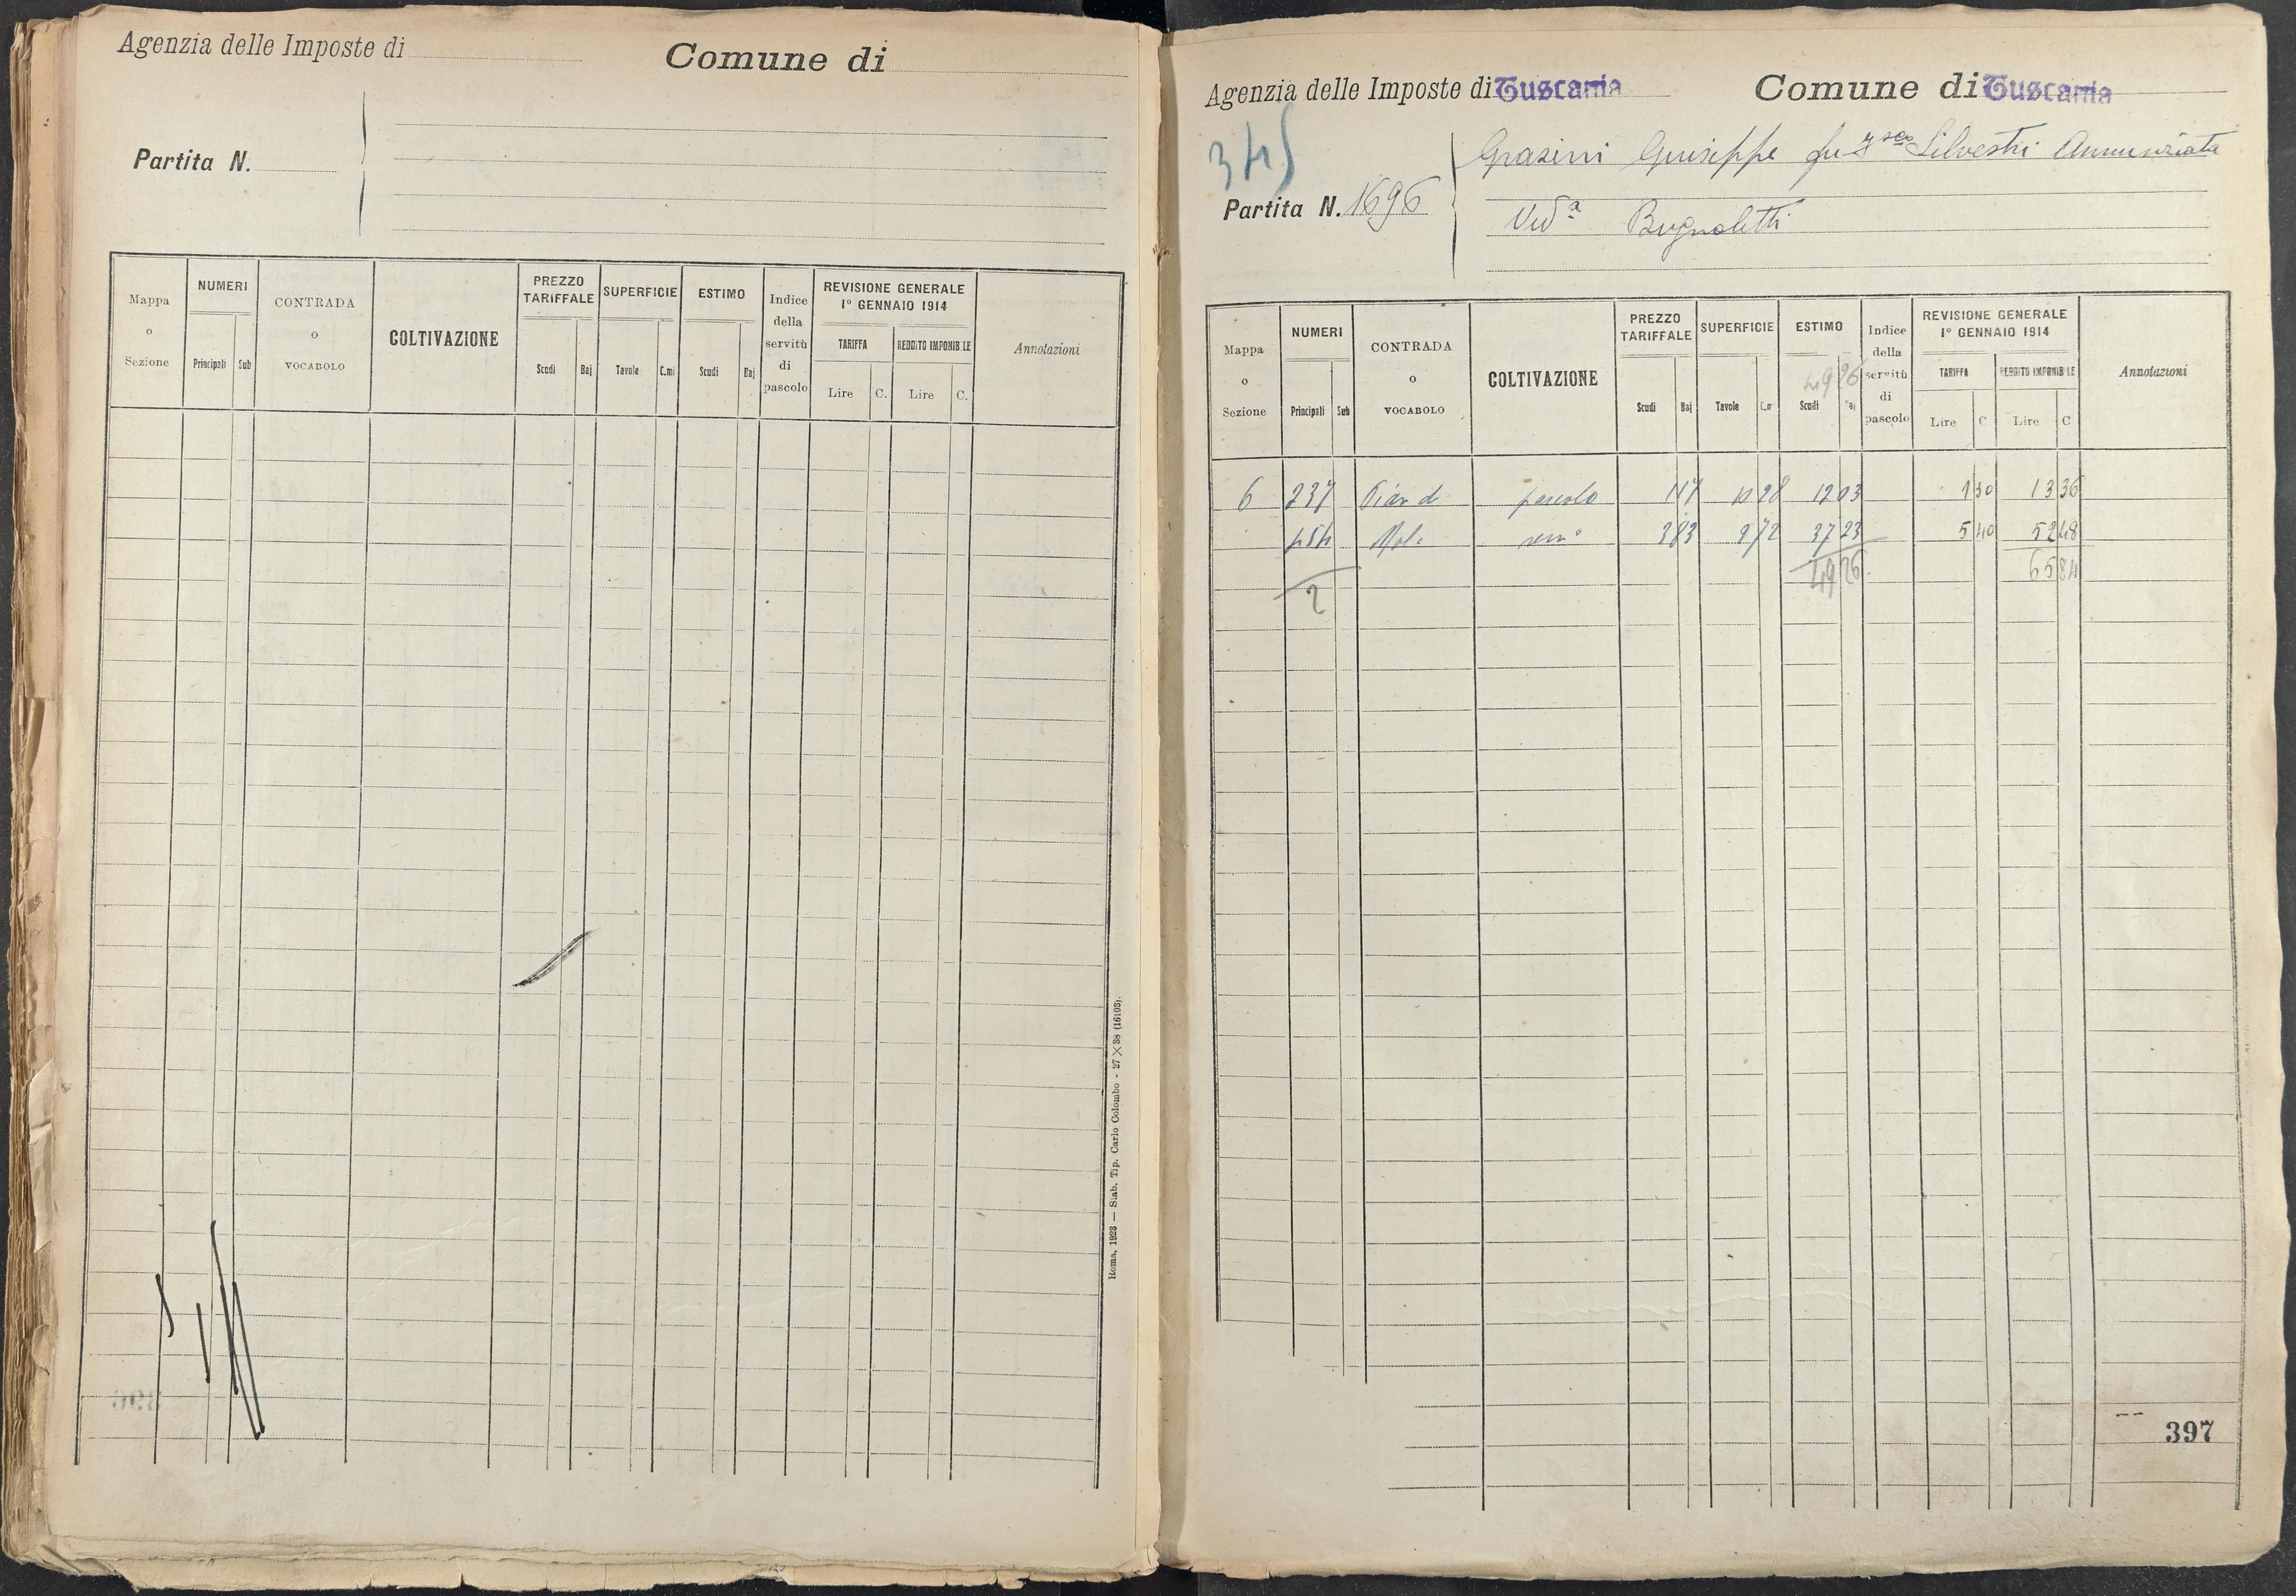 Agenzia delle Imposte di
Comune di
Partita N.
Mappa o Sezione
NUMERI
Principali Sub
CONTRADA o VOCABOLO
COLTIVAZIONE
PREZZO TARIFFALE
Scudi Baj
SUPERFICIE
Tavole C.mi
ESTIMO
Scudi Baj
Indice della servitù di pascolo
REVISIONE GENERALE
1º GENNAIO 1914
TARIFFA
Lire C.
REDDITO IMPONIBILE
Lire C.
Annotazioni
Roma, 1923 — Stab. Tip. Carlo Colombo - 27 X 38 (16103).
Agenzia delle Imposte di Tuscania
Comune di Tuscania
345
Partita N. 1696
Grasini Giuseppe fu Silvestri Annunziata
Ved.a Bugnoletti
Mappa o Sezione
NUMERI
Principali Sub
CONTRADA o VOCABOLO
COLTIVAZIONE
PREZZO TARIFFALE
Scudi Baj
SUPERFICIE
Tavole C.
ESTIMO
4926
Scudi Baj
Indice della servitù di pascolo
REVISIONE GENERALE
1º GENNAIO 1914
TARIFFA
Lire C
REDDITO IMPONIBILE
Lire C
Annotazioni
6 237 Pian di pascolo 117 10 28 12 03 1 30 13 36
454 Mola semo 383 9 72 37 23 5 40 52 48
2 49 26 65 84
397